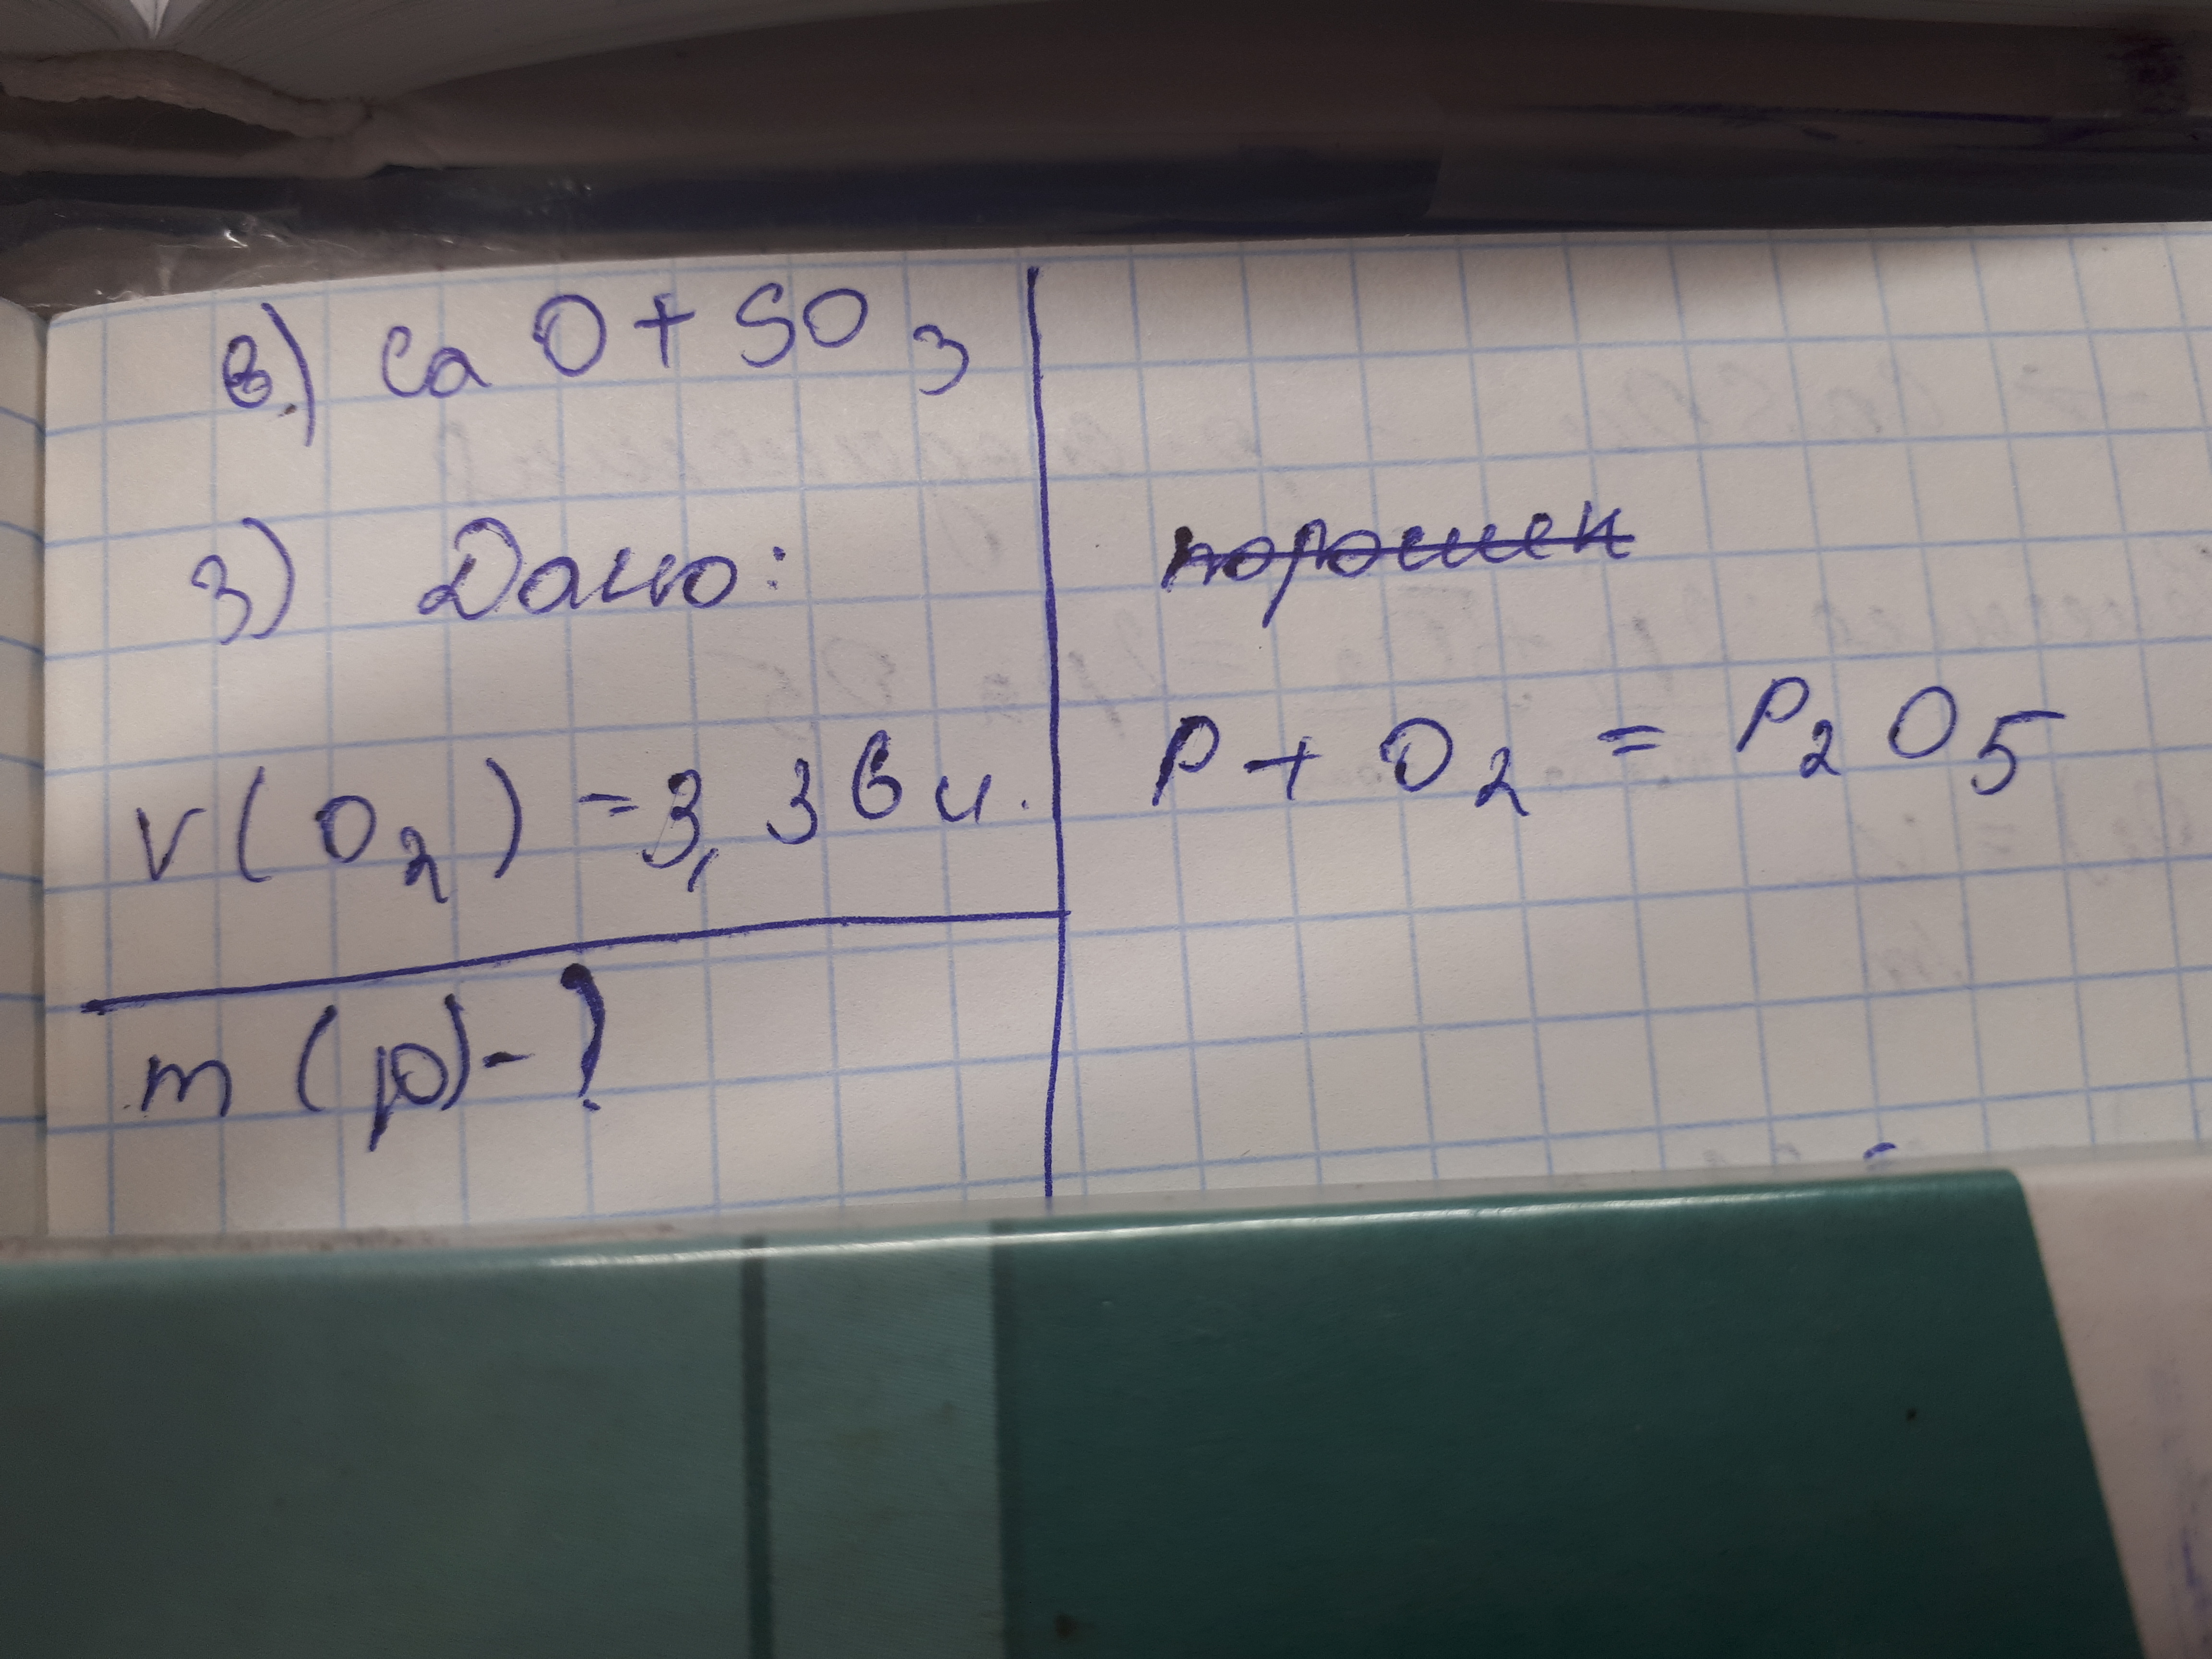 в) CaO + SO3
3) Дано:
V(O2) = 3,36 л.
m(p) - ?
порошек
P + O2 = P2O5